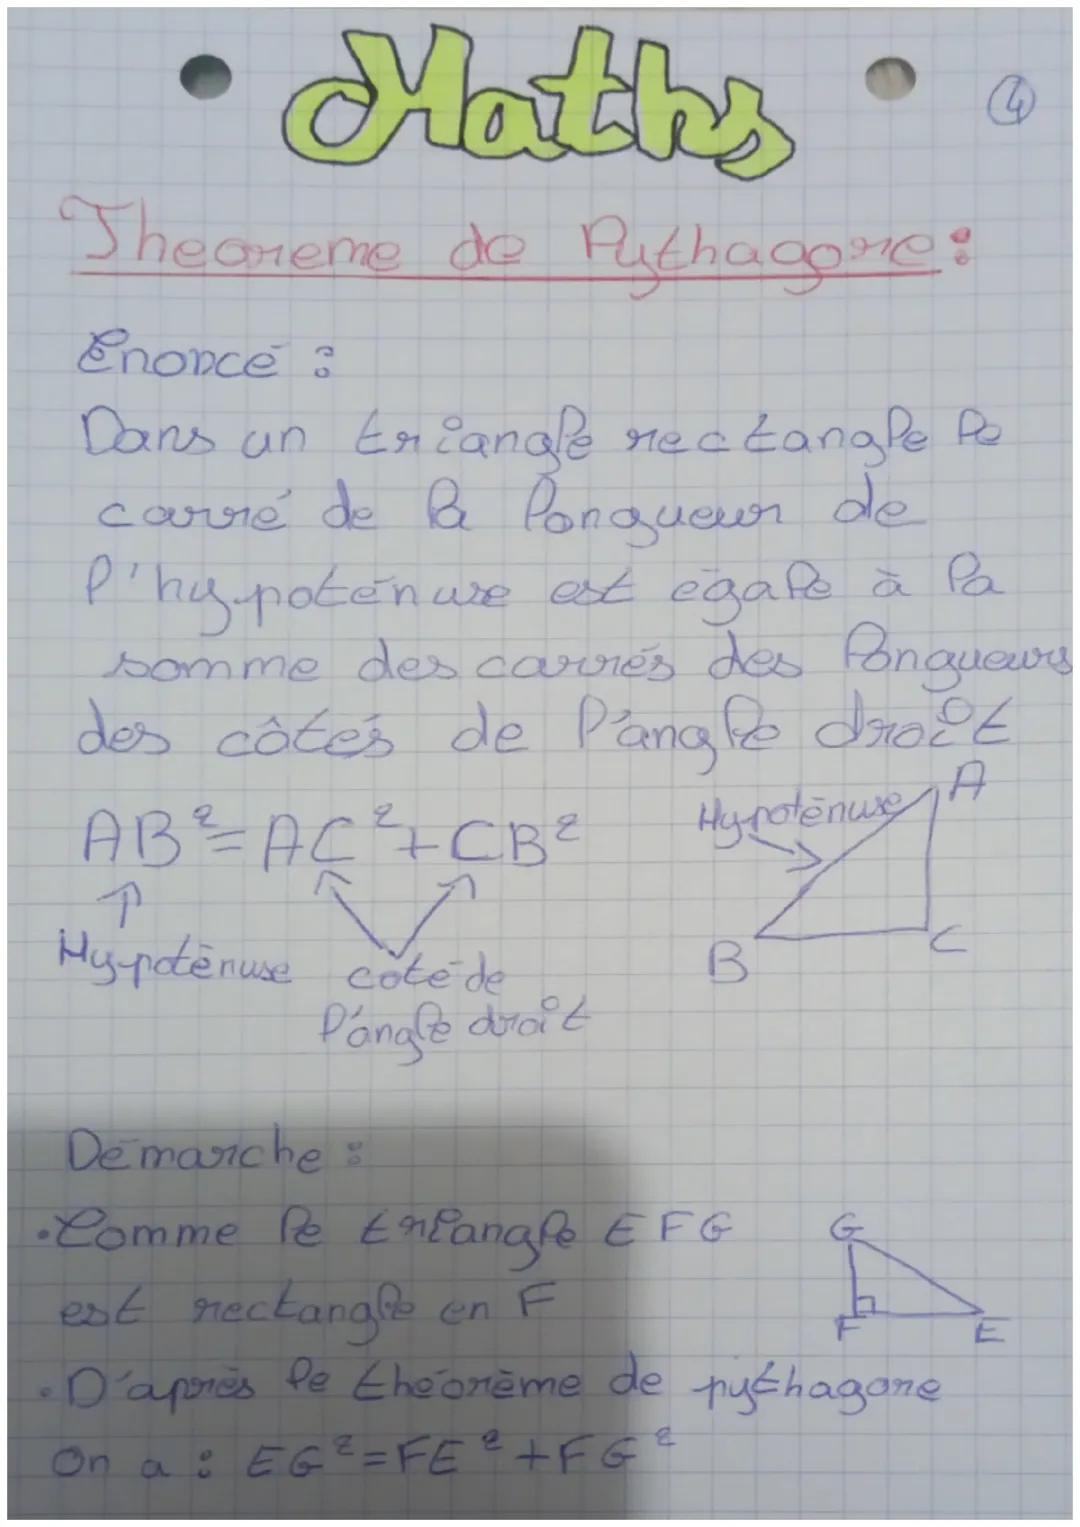 Maths
4
Theoreme de Pythagore :
Énoncé :
Dans un triangle rectangle le
carré de la longueur de
l'hypoténuse est égale à la
somme des carrés des longueurs
des côtés de l'angle droit
AB²=AC²+CB²
Hypoténuse
coté de
l'angle droit
Hypoténuse
A
B
C
Démarche :
• Comme le triangle EFG
est rectangle en F
G
F
E
• D'après le théorème de pythagore
On a : EG²=FE²+FG²